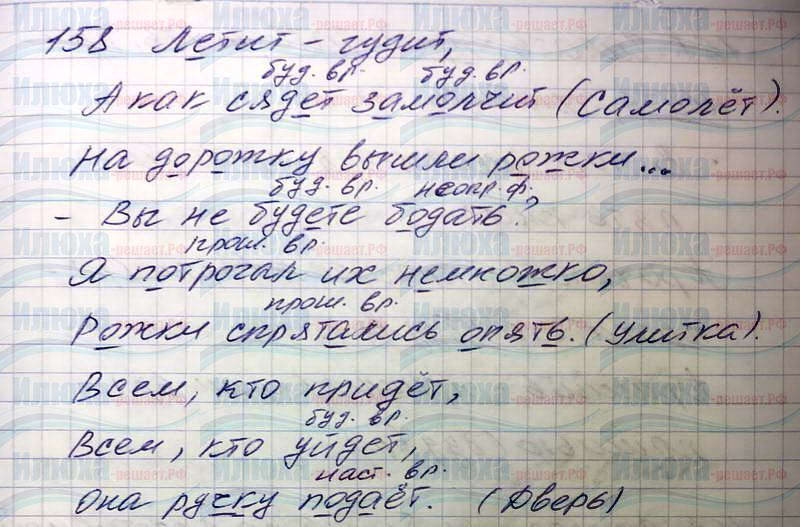 158 Летит - гудит,
буд. вр. буд. вр.
А как сядет замолчит (Самолёт).
На дорожку вышли рожки...
буд. вр. неопр. ф.
- Вы не будете бодать?
прош. вр.
Я потрогал их немножко,
прош. вр.
Рожки спрятались опять. (Улитка).
Всем, кто придёт,
буд. вр.
Всем, кто уйдёт,
наст. вр.
Она ручку подаёт. (Дверь)
Илюха-решает.РФ